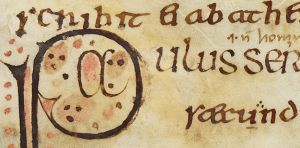 scribit e abathe
i·n homin
Paulus ser
saecund